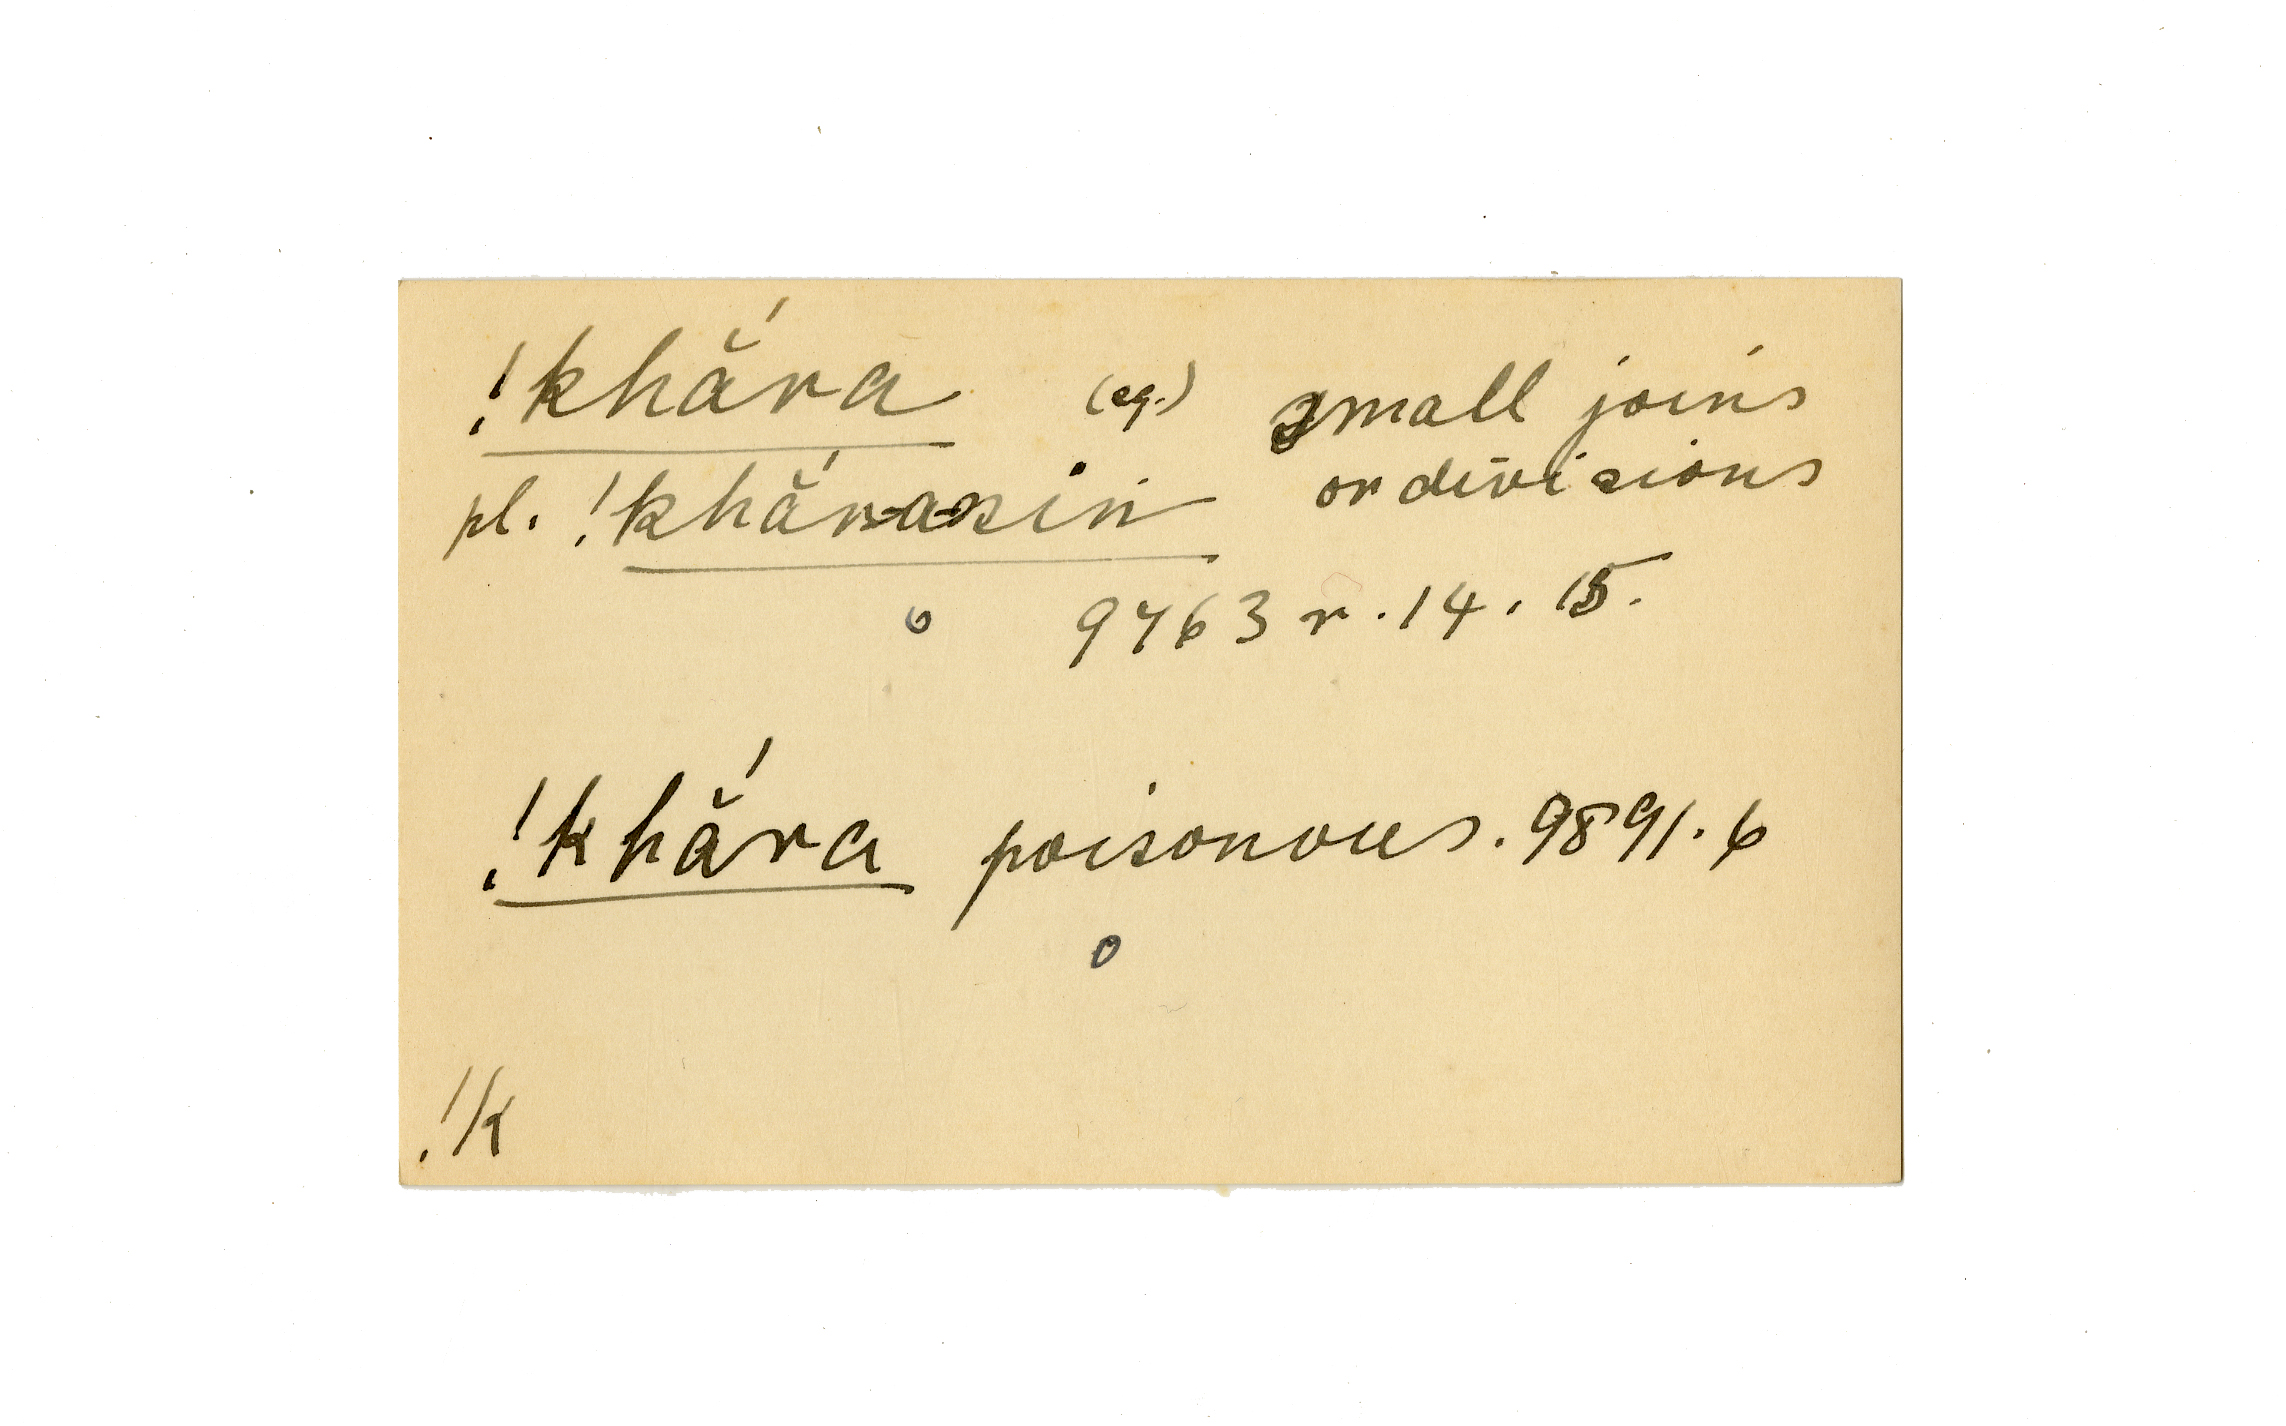 !khắra (sg.) small joins
pl. !khắrasin or divisions
o 9763 r. 14. 15.
!khắra poisonous. 9891. 6
o
!k